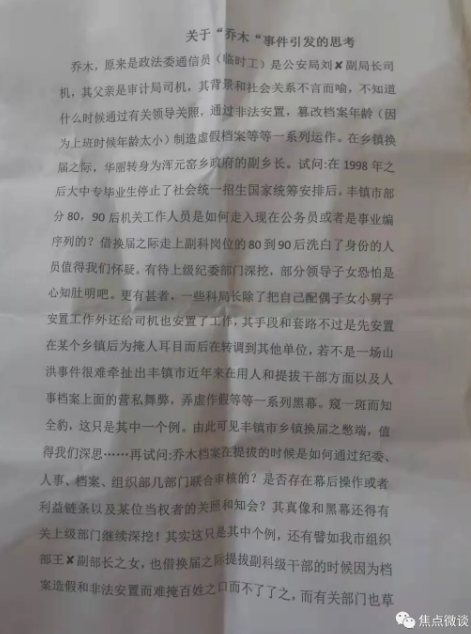 关于“乔木“事件引发的思考
乔木，原来是政法委通信员（临时工）是公安局刘✘副局长司
机，其父亲是审计局司机，其背景和社会关系不言而喻，不知道
什么时候通过有关领导关照，通过非法安置，篡改档案年龄（因
为上班时候年龄太小）制造虚假档案等等一系列运作。在乡镇换
届之际，华丽转身为浑元窑乡政府的副乡长。试问:在 1998 年之
后大中专毕业生停止了社会统一招生国家统筹安排后，丰镇市部
分 80，90 后机关工作人员是如何走入现在公务员或者是事业编
序列的？借换届之际走上副科岗位的 80 到 90 后洗白了身份的人
员值得我们怀疑。有待上级纪委部门深挖，部分领导子女恐怕是
心知肚明吧。更有甚者，一些科局长除了把自己配偶子女小舅子
安置工作外还给司机也安置了工作，其手段和套路不过是先安置
在某个乡镇后为掩人耳目而后在转调到其他单位，若不是一场山
洪事件很难牵扯出丰镇市近年来在用人和提拔干部方面以及人
事档案上面的营私舞弊，弄虚作假等等一系列黑幕。窥一斑而知
全豹，这只是其中一个例。由此可见丰镇市乡镇换届之憋端，值
得我们深思……再试问:乔木档案在提拔的时候是如何通过纪委、
人事、档案、组织部几部门联合审核的？是否存在幕后操作或者
利益链条以及某位当权者的关照和知会？其真像和黑幕还得有
关上级部门继续深挖！其实这只是其中个例，还有譬如我市组织
部王✘副部长之女，也借换届之际提拔副科级干部的时候因为档
案造假和非法安置而难掩百姓之口而不了了之，而有关部门也草
焦点微谈